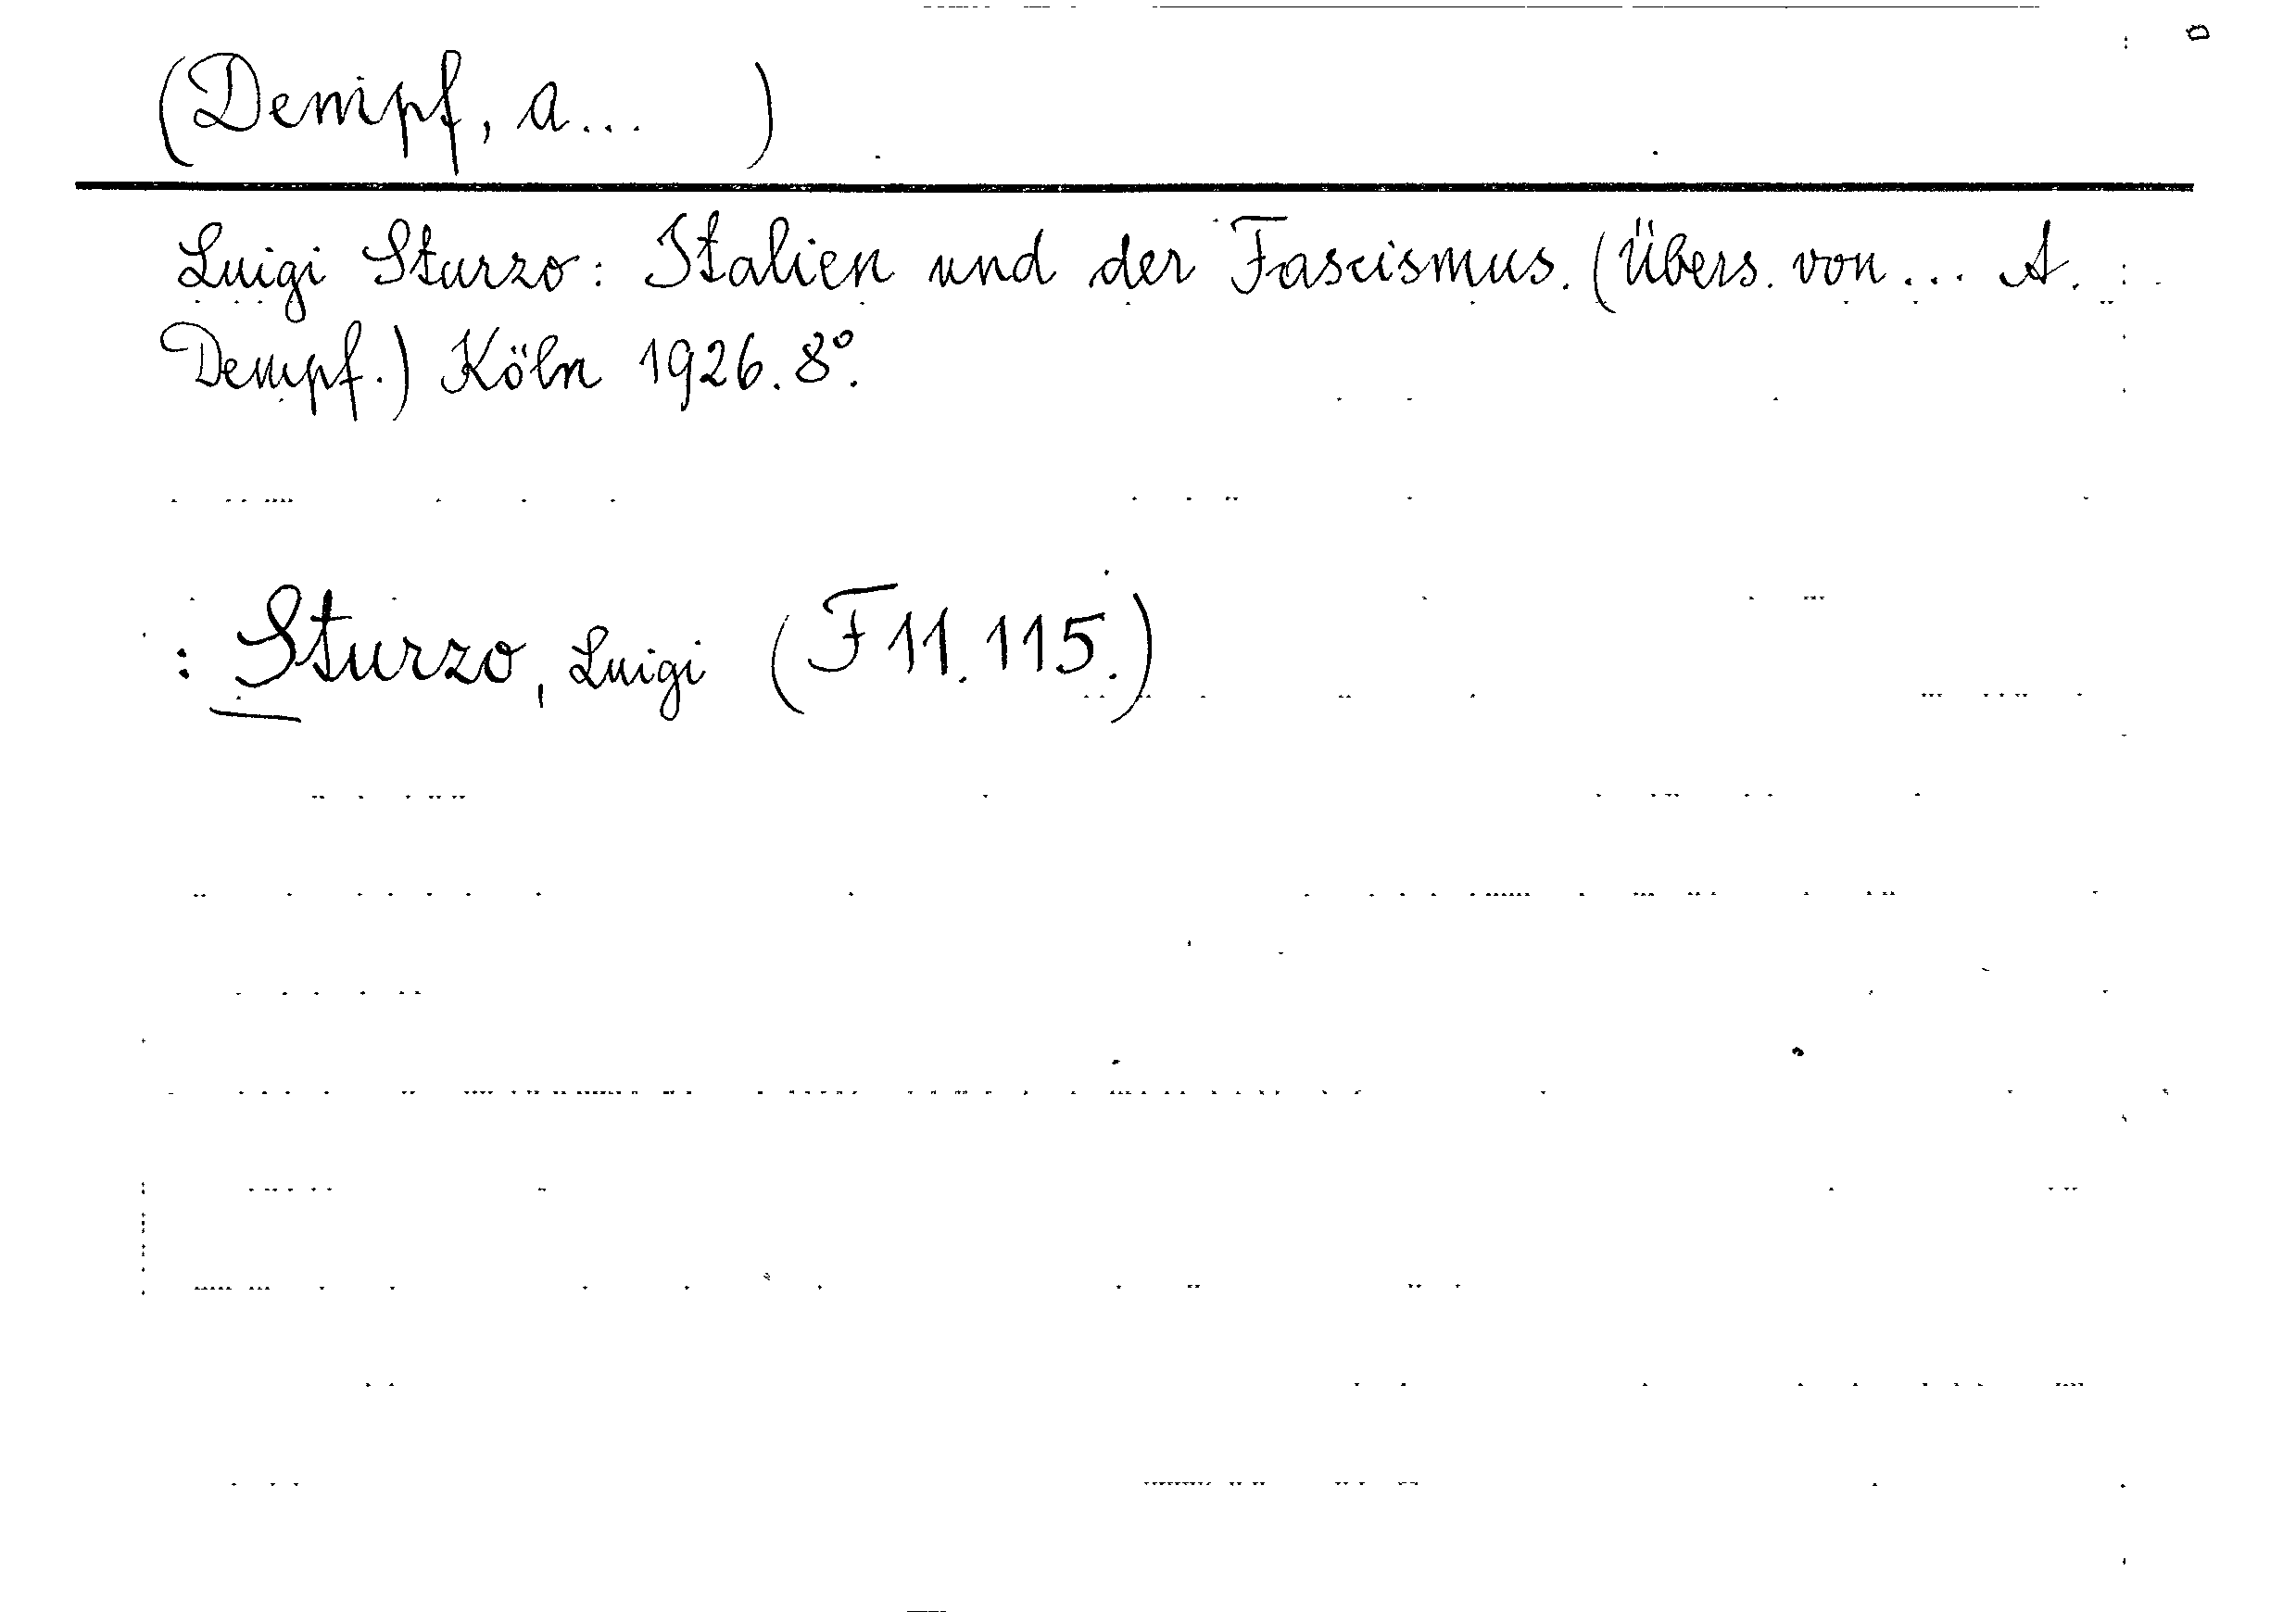 (Dempf, A... )
Luigi Sturzo: Italien und der Fascismus. (Übers. von ... A.
Dempf.) Köln 1926. 8°.
: Sturzo, Luigi (F 11. 115.)